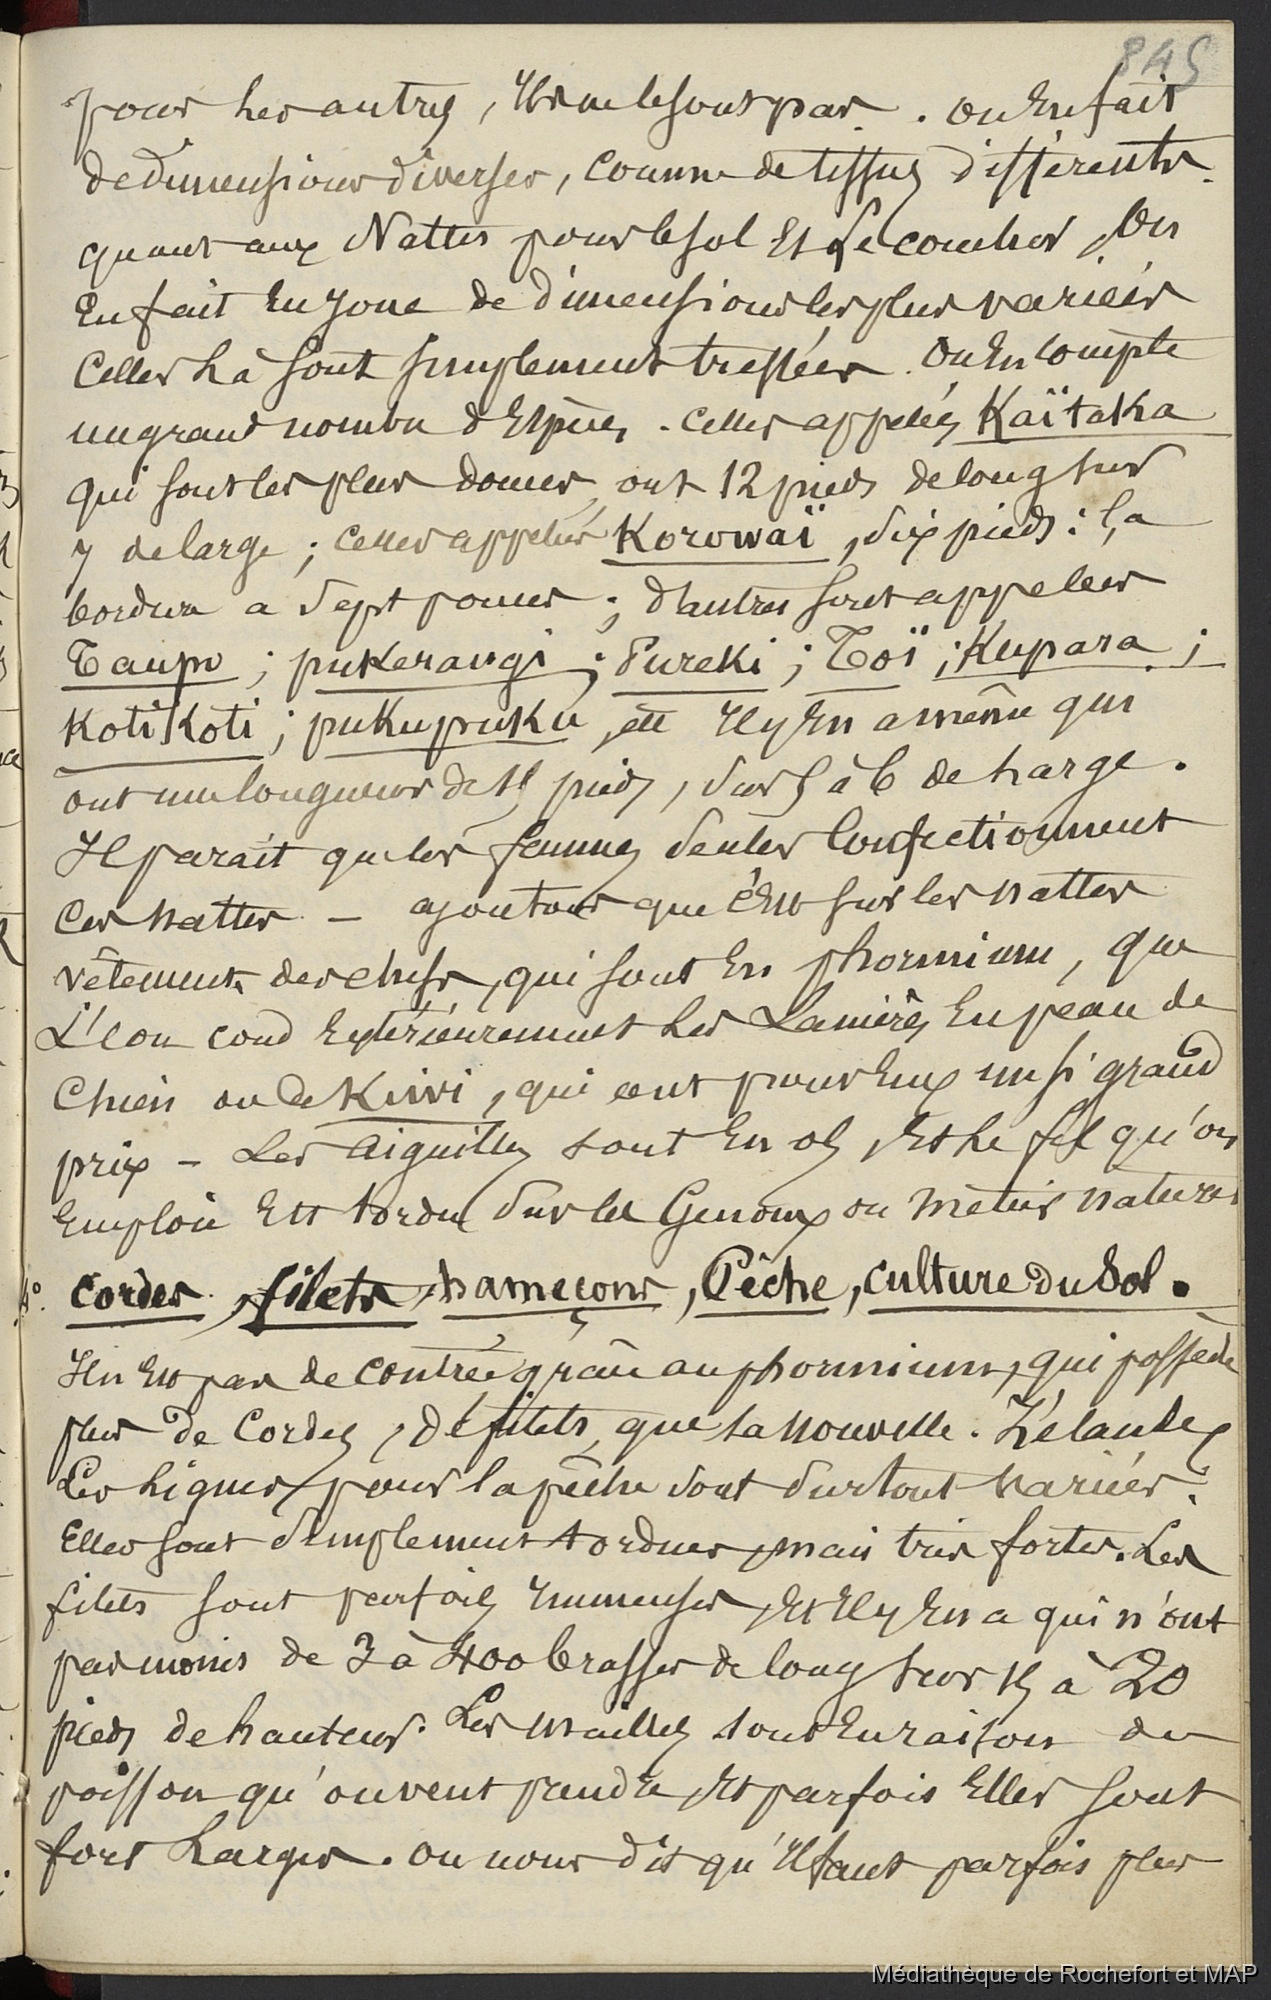 845
pour les autres, Ils ne le sont pas. On En fait
de dimensions diverses, comme de tissus différents.
quant aux Nattes pour le sol Et se coucher, On
En fait En jonc de dimensions les plus variées
Celles là sont simplement tressées. On En compte
un grand nombre d'Espèces. Celles appelées Kaïtaka
qui sont les plus douces, ont 12 pieds de long sur
7 de large ; celles appelées Korowaï, dix pieds : la
bordure a Sept pouces ; d'autres sont appelées
Taupo ; pukerangi ; Pureki ; Toï ; Kupara ;
Kotikoti ; pukupuku, etc Il y En a même qui
ont une longueur de 15 pieds, sur 5 à 6 de large.
Il parait que les femmes seules Confectionnent
Ces nattes – ajoutons que c'est sur les nattes
vêtements des chefs, qui sont En phormium, que
L'on coud Extérieurement les Lanières En peau de
Chien ou de Kiwi, qui ont pour Eux un si grand
prix – Les aiguilles sont En os, Et le fil qu'on
Emploie Est tordu Sur les Genoux ou métiers naturels
4° Cordes, filets, hameçons, Pêche, culture du Sol.
Il n'Est pas de contrée, grâce au phormium, qui possède
plus de Cordes, de filets, que la Nouvelle-Zélande,
Les lignes pour la pêche sont surtout variées.
Elles sont simplement tordues, mais très fortes. Les
filets sont parfois Immenses, Et Il y En a qui n'ont
pas moins de 3 à 400 brasses de long sur 15 à 20
pieds de hauteur. Les mailles sont En raison du
poisson qu'on veut prendre, Et parfois Elles sont
fort Larges. On nous dit qu'Il faut parfois plus
Médiathèque de Rochefort et MAP